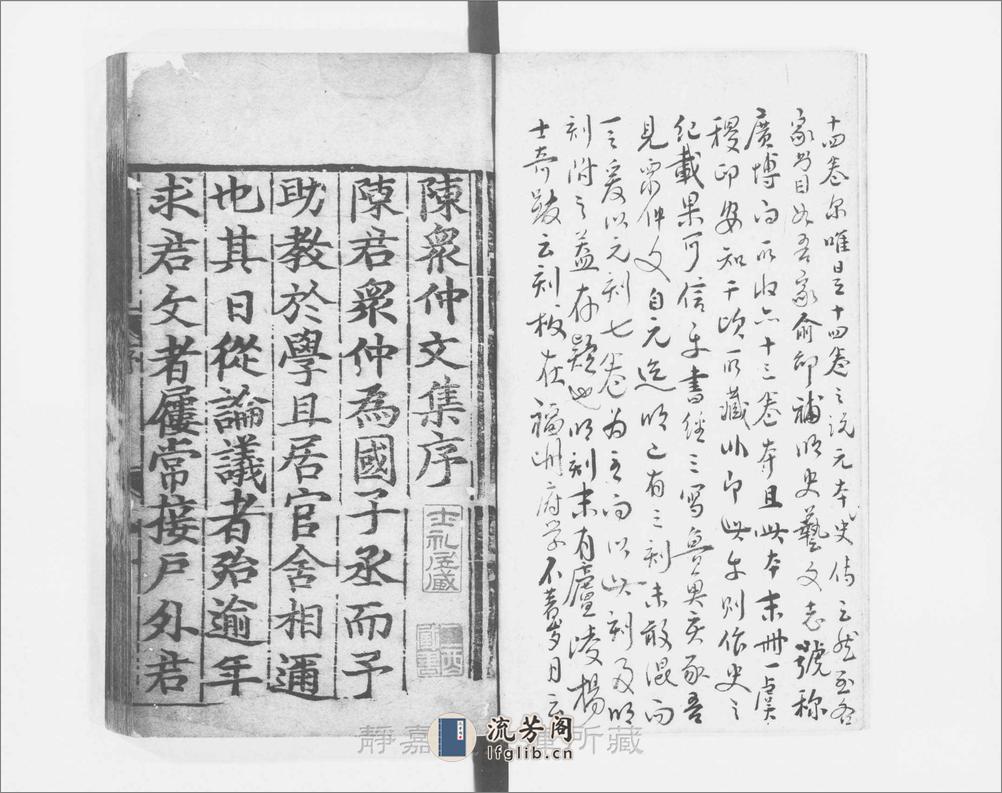 十四卷尔唯是十四卷之説元本史傳已然至各
家書目如吾家俞邰補明史藝文志號称
廣博而所收亦十三卷弃且此本末冊一虞
稷印安知千頃所藏非即此乎則依史之
紀載果可信乎書經三寫魯魚亥豕吾
見眾仲文自元迄明已有三刻未敢混而
一之爰以元刻七卷为主而以此刻及明
刻附之益存疑也明刻末有廬陵楊
士奇跋云刻板在福州府学不著岁月云
陳衆仲文集序
陳君衆仲為國子丞而予
助教於學且居官舍相邇
也其日從論議者殆逾年
求君文者屨常接戶外君
士礼居藏
靜嘉 所藏
流芳阁
lfglib.cn